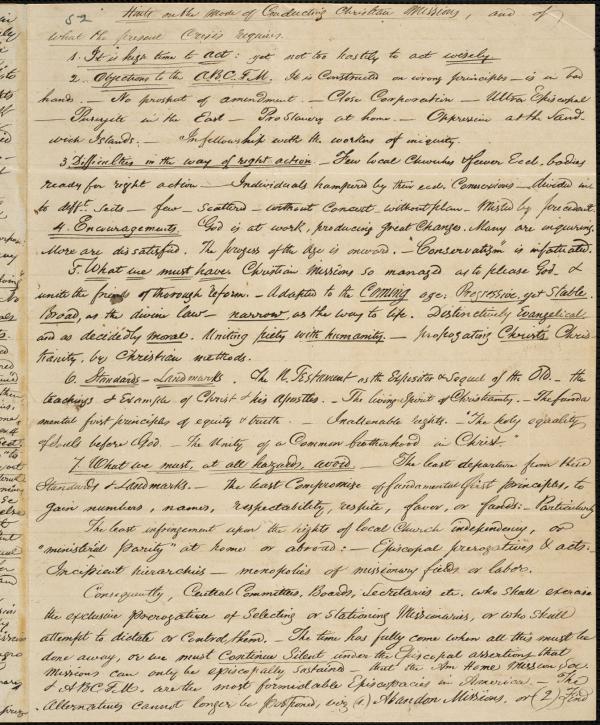 52 Hints on the mode of Conducting Christian Missions, and of
what the present Crisis requires.
1. It is high time to act: yet not too hastily to act wisely
2. Objections to the A.B.C.F.M. It is Constructed on wrong principles – is in bad
hands. – No prospect of amendment. – Close Corporation – Ultra Episcopal
– in the East – Pro Slavery at home. – Oppression at the Sand
wich Islands. – In fellowship with the workers of iniquity.
3 Difficulties in the way of right action – Few local Churches & fewer Eccl. bodies
ready for right action – Individuals hampered by their eccl. Connexions – divided in
to difft. sects – few – scattered – without Concert without plan – Misled by precedent
4. Encouragements. God is at work, producing great Changes. Many are inquiring.
More are dissatisfied. The progress of the Age is onward. – "Conservatism" is infatuated.
5. What we must have. Christian Missions so managed as to please God. &
unite the friends of thorough reform. – Adapted to the Coming age: Progressive, yet Stable.
Broad, as the divine law – narrow, as the way to life. Distinctively Evangelical
and as decidedly moral. Uniting piety with humanity. – propagating Christ's Chris-
tianity, by Christian methods.
6. Standards – Landmarks. The N. Testament as the Expositor & Sequel of the Old. – the
teachings & Example of Christ & his Apostles. – The living Spirit of Christianity. – The funda
mental first principles of equity & truth. – Inalienable rights. – "The holy equality
of souls before God. – The Unity of a Common brotherhood in Christ."
7. What we must, at all hazards, avoid. – The least departure from these
Standards & Landmarks. – the least Compromise of fundamental first principles, to
gain numbers, names, respectability, respite, favor, or funds: – Particularly
The least infringement upon the rights of local Church independency, or
"ministerial parity" at home or abroad: – Episcopal prerogatives & acts:
Incipient hierarchies – monopolies of missionary fields or labor.
Consequently, Central Committees, Boards, Secretaries etc. who Shall exercise
the exclusive prerogative of Selecting or Stationing Missionaries, or who Shall
attempt to dictate or Control them. – The time has fully come when all this must be
done away, or we must Continue Silent under the Episcopal assertions that
Missions can only be episcopally sustained – that the Am Home Mission Soc
& A.B.C.F.M. are the most formidable Episcopacies in America – The
Alternatives cannot longer be postponed, viz (1) Abandon Missions, or (2) Find